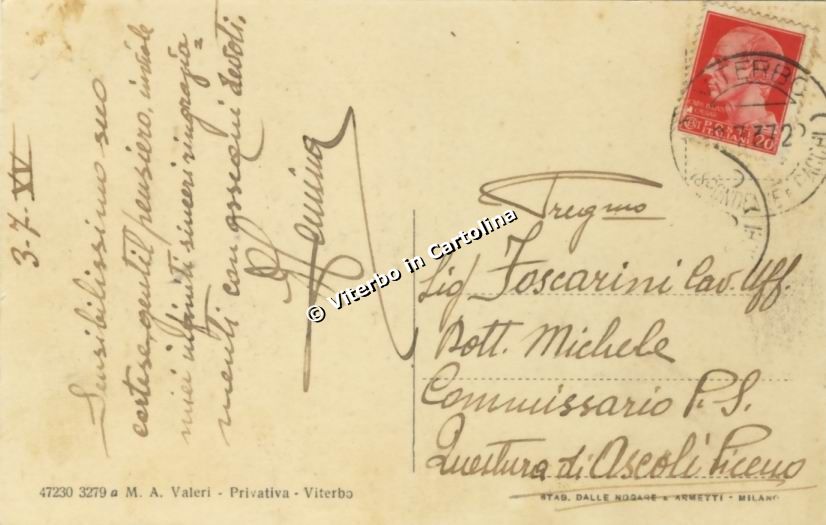 3-7-XV
Sensibilissimo suo
cortese, gentil pensiero, inviole
miei infiniti sinceri ringrazia=
menti con ossequi devoti.
Pregmo
Sig Foscarini Cav. Uff.
Dott. Michele
Commissario P.S.
Questura di Ascoli Piceno
VITERBO
POSTE ITALIANE 20
© Viterbo in Cartolina
47230 3279 a M. A. Valeri - Privativa - Viterbo
STAB. DALLE NOGARE & ARMETTI - MILANO